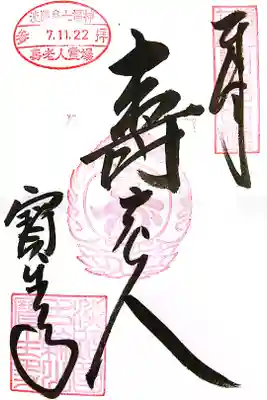 淡路島七福神
参 7.11.22 拝
寿老人霊場
奉拝
壽老人
寳生寺